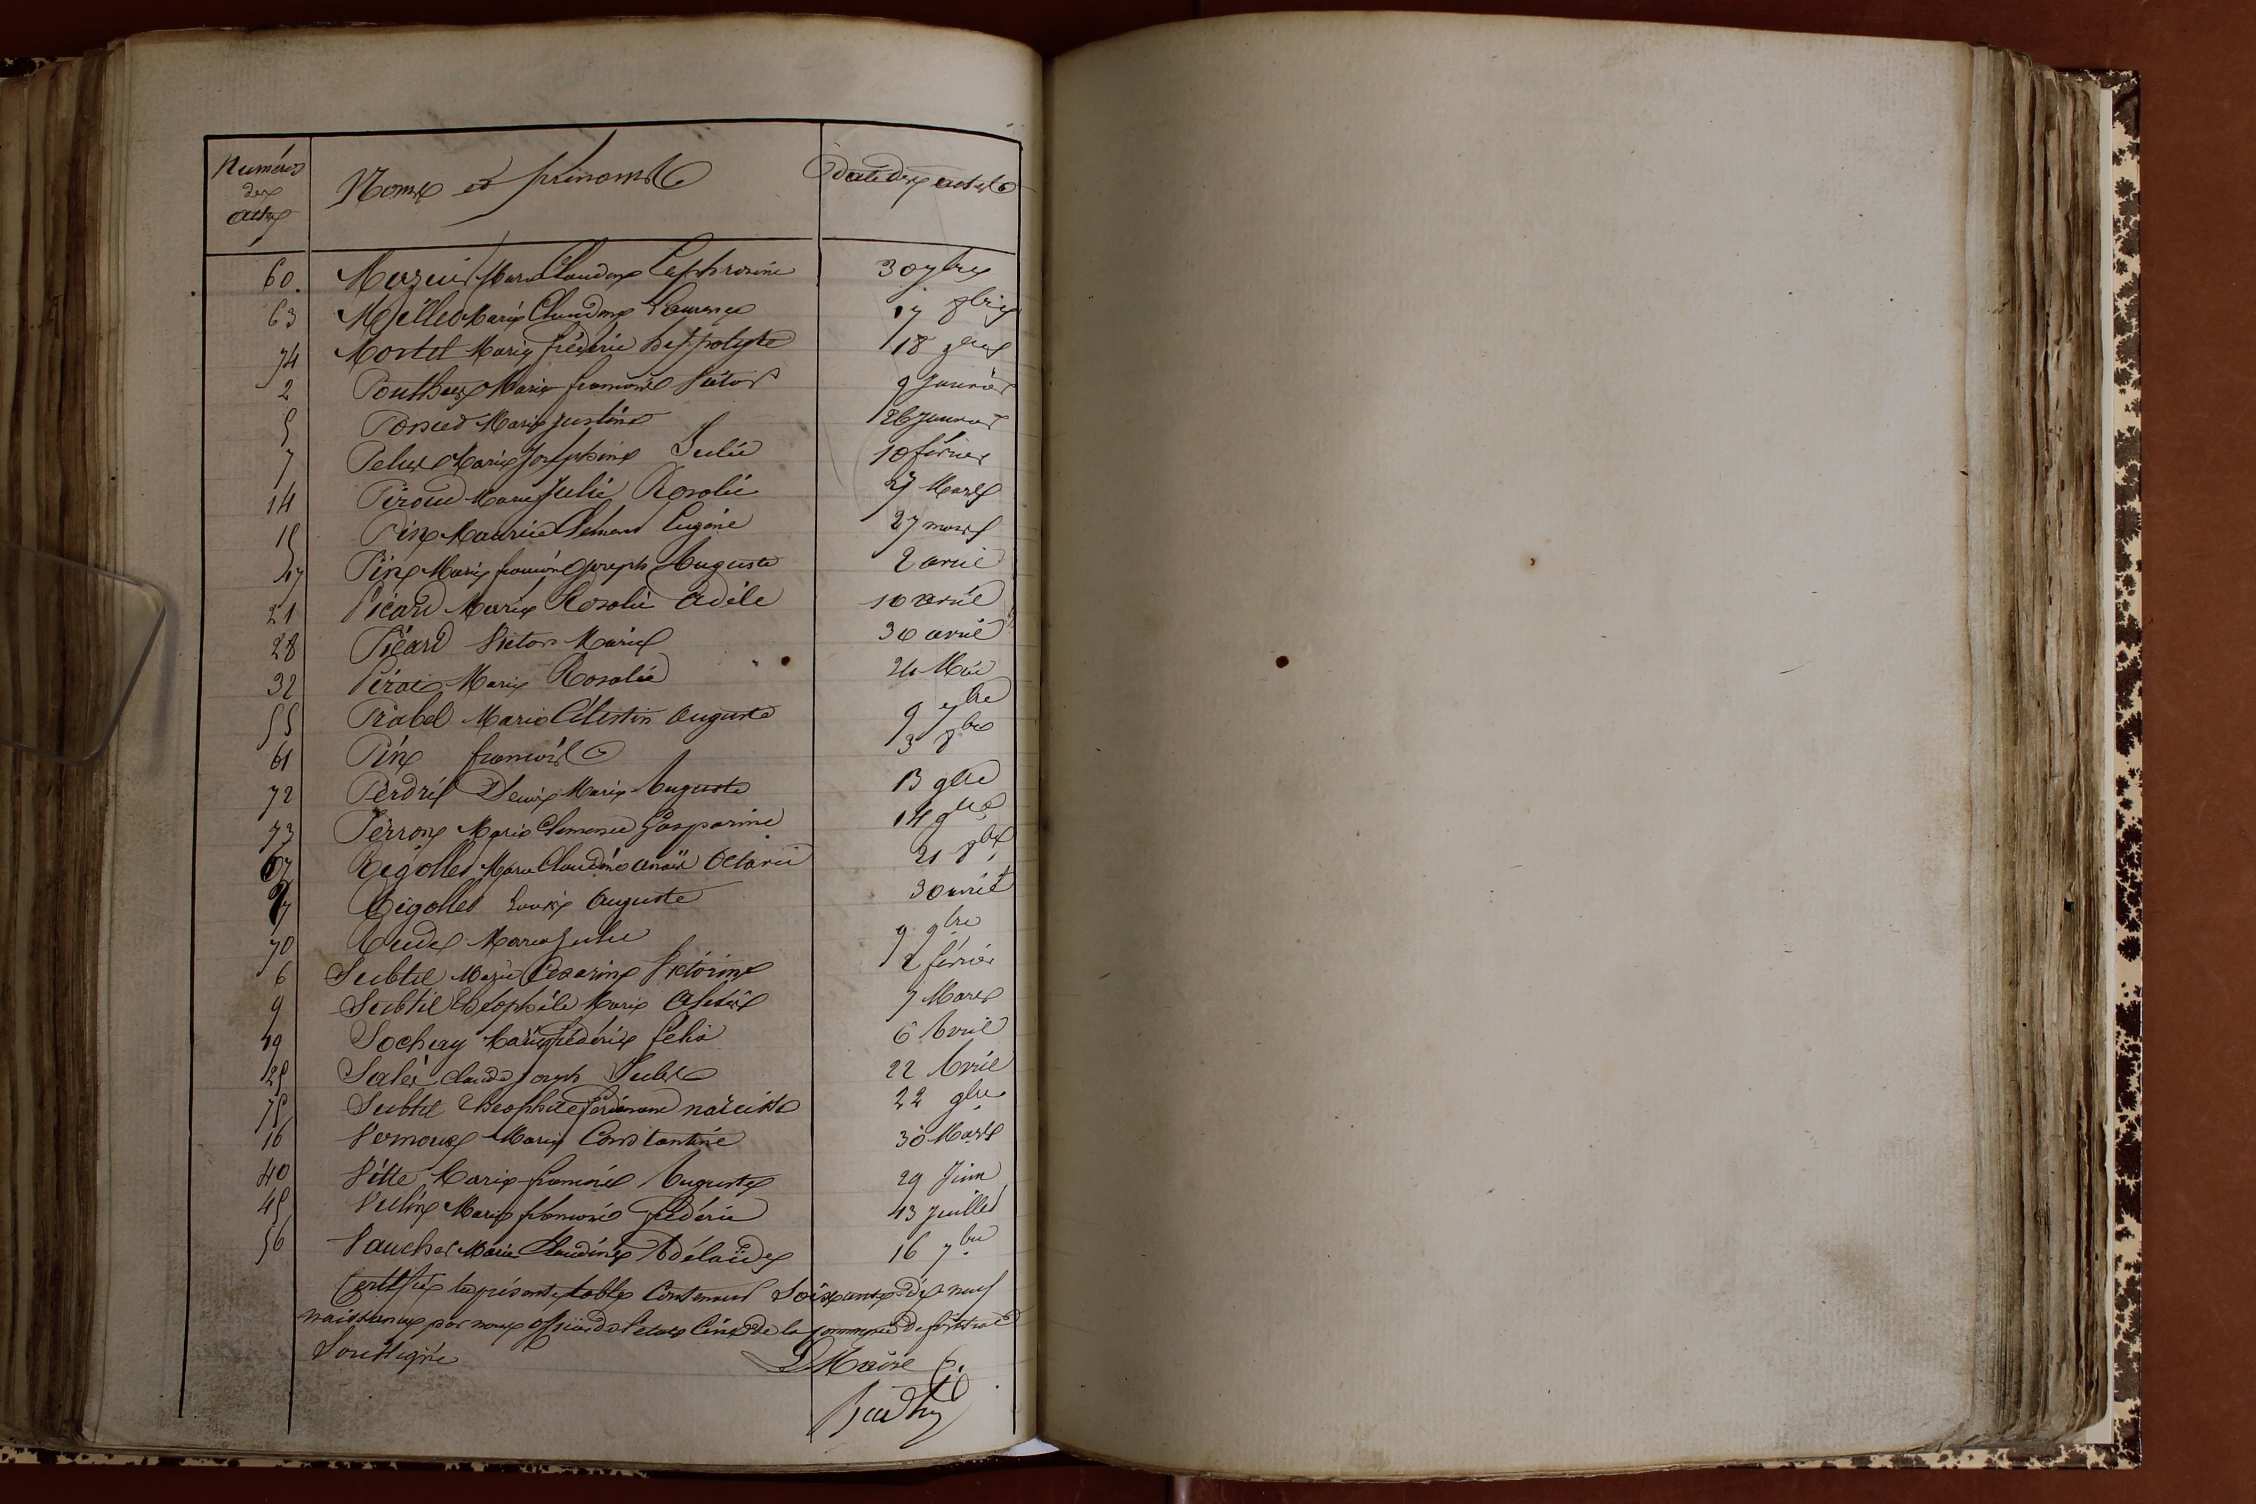 Numéros des actes Noms et prénoms date des actes
60. Mazuir Marie Claudine Euphrosine 30 7bre
63 Millet Marie Claudine Laurence 17 8bre
74 Mortel Marie frédéric hippolyte 18 9bre
2 Pontheux Marie francois Victor 9 Janvier
5 Marie Justine 26 Janvier
7 Pelux Marie Joséphine Julie 10 février
14 Piroud Marie Julie Rosalie 27 Mars
15 Pin Maurice Clément Eugène 27 mars
17 Pin Marie francois Joseph Auguste 2 avril
21 Picard Marie Rosalie Adèle 10 avril
28 Picard Victor Marie 30 avril
32 Marie Rosalie 24 Mai
55 Prabel Marie Célestin Auguste 9 7bre
61 Pin francois 3 8bre
72 Perdrix Denis Marie Auguste 13 9bre
73 Perron Marie Clémence Gasparine 14 9bre
67 Rigollet Marie Claudine anaïs Octavie 21 8bre
27 Rigollet Louis Auguste 30 avril
70 Rude Marie Julie 9 9bre
6 Subtil Marie Césarine Victorine 2 février
9 Subtil théophile Marie 7 Mars
19 Sochay Marie frédéric félix 6 Avril
25 Claude Joseph Jules 22 Avril
75 Subtil théophile ferdinand narcisse 22 9bre
16 Vernoux Marie Constantine 30 Mars
40 Vitte Marie francois Auguste 29 Juin
45 Vullin Marie francois frédéric 13 Juillet
56 Vaucher Marie Claudine Adélaïde 16 7bre
Certifié la présente table Contenant Soixante dix neuf
naissances par nous officier de l'etat Civil de la Commune de
Soussigné Le Maire